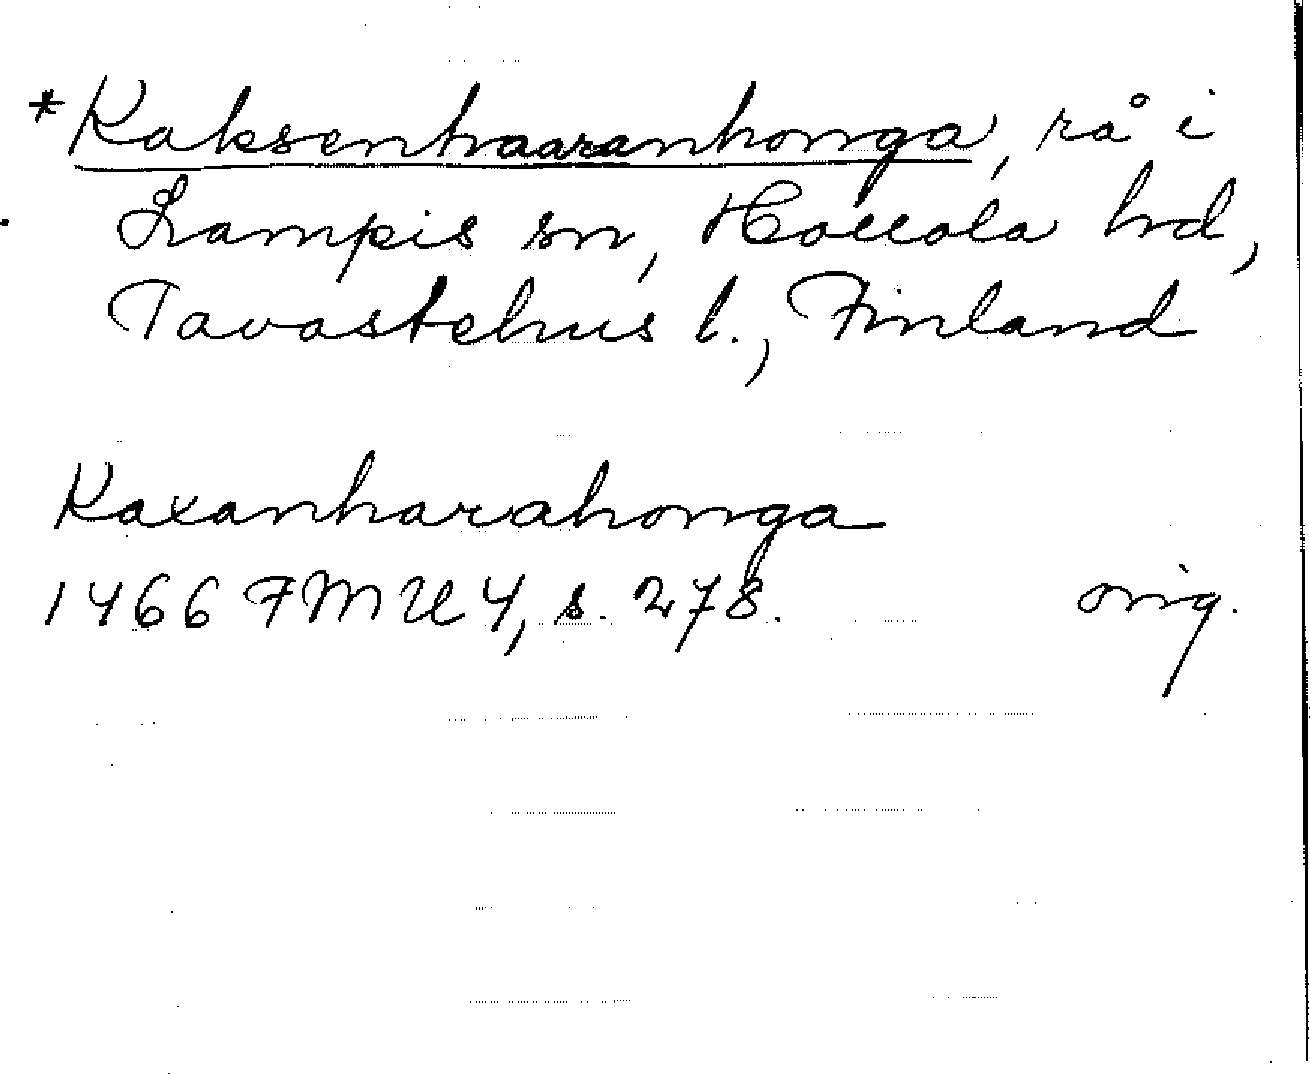 *Kaksenhaaranhonga, rå i
Lampis sn, Hollola hd,
Tavastehus l., Finland
Kaxanharahonga
1466 FMU 4, s. 278. orig.